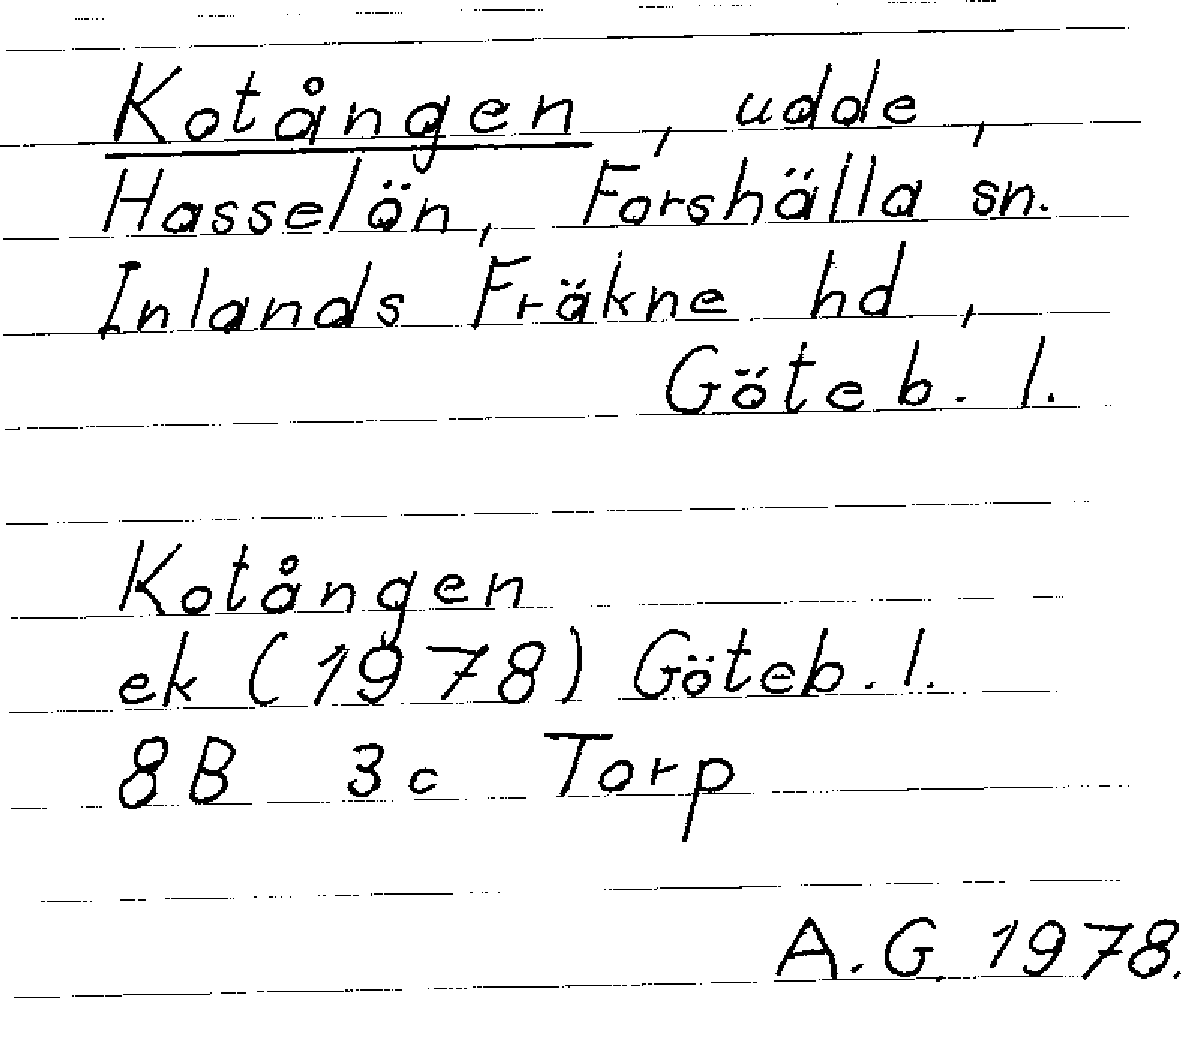 Kotången, udde,
Hasselön, Forshälla sn.
Inlands Fräkne hd,
Göteb. l.
Kotången
ek (1978) Göteb. l.
8B 3c Torp
A.G. 1978.